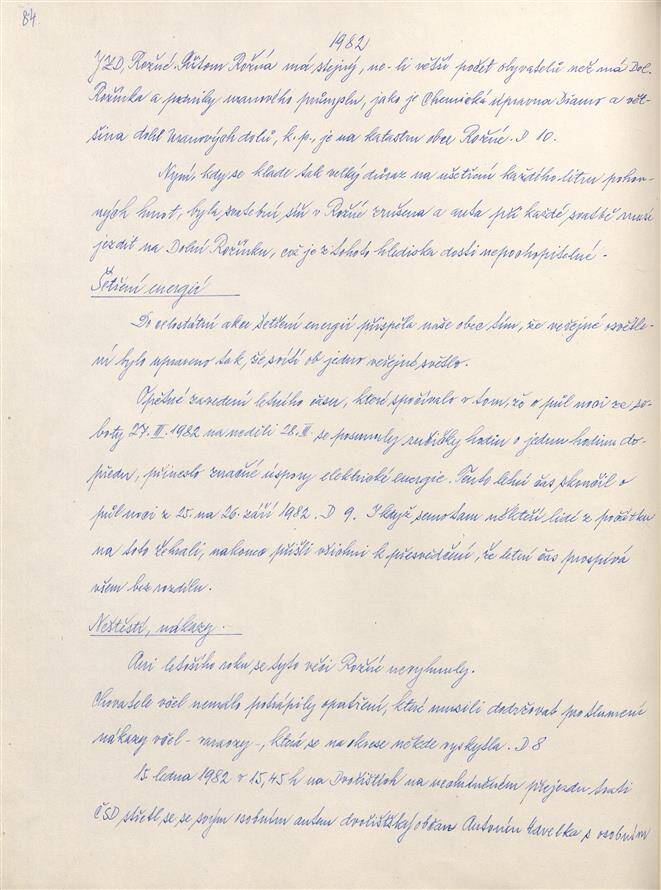 84
1982
JZD, Rožné. Přitom Rožná má stejný, ne-li větší počet obyvatelů než má Dol.
Rožínka a podniky uranového průmyslu, jako je Chemická úpravna Diamo a vět-
šina dolů Uranových dolů, k. p., je na katastru obce Rožné. D 10.
Nyní, kdy se klade tak velký důraz na ušetření každého litru pohon-
ných hmot, byla svatební síň v Rožné zrušena a auta při každé svatbě musí
jezdit na Dolní Rožínku, což je z tohoto hlediska dosti nepochopitelné.
Šetření energií
Do celostátní akce šetření energií přispěla naše obec tím, že veřejné osvětle-
ní bylo upraveno tak, že svítí ob jedno veřejné světlo.
Opětné zavedení letního času, které spočívalo v tom, že o půl noci ze so-
boty 27. III. 1982 na neděli 28. III. se posunuly ručičky hodin o jednu hodinu do-
předu, přineslo značné úspory elektrické energie. Tento letní čas skončil o
půl noci z 25. na 26. září 1982. D 9. I když semotam někteří lidé z počátku
na toto žehrali, nakonec přišli všichni k přesvědčení, že letní čas prospívá
všem bez rozdílu.
Neštěstí, nákazy.
Ani letošího roku se tyto věci Rožné nevyhnuly.
Chovatele včel nemálo potrápily opatření, které museli dodržovat po tlumení
nákazy včel - varaozy -, která se na okrese někde vyskytla. D 8
15. ledna 1982 v 15,45 h na Dvořištích na nechráněném přejezdu trati
ČSD střetl se se svým osobním autem dvořišťský občan Antonín Havelka s osobním